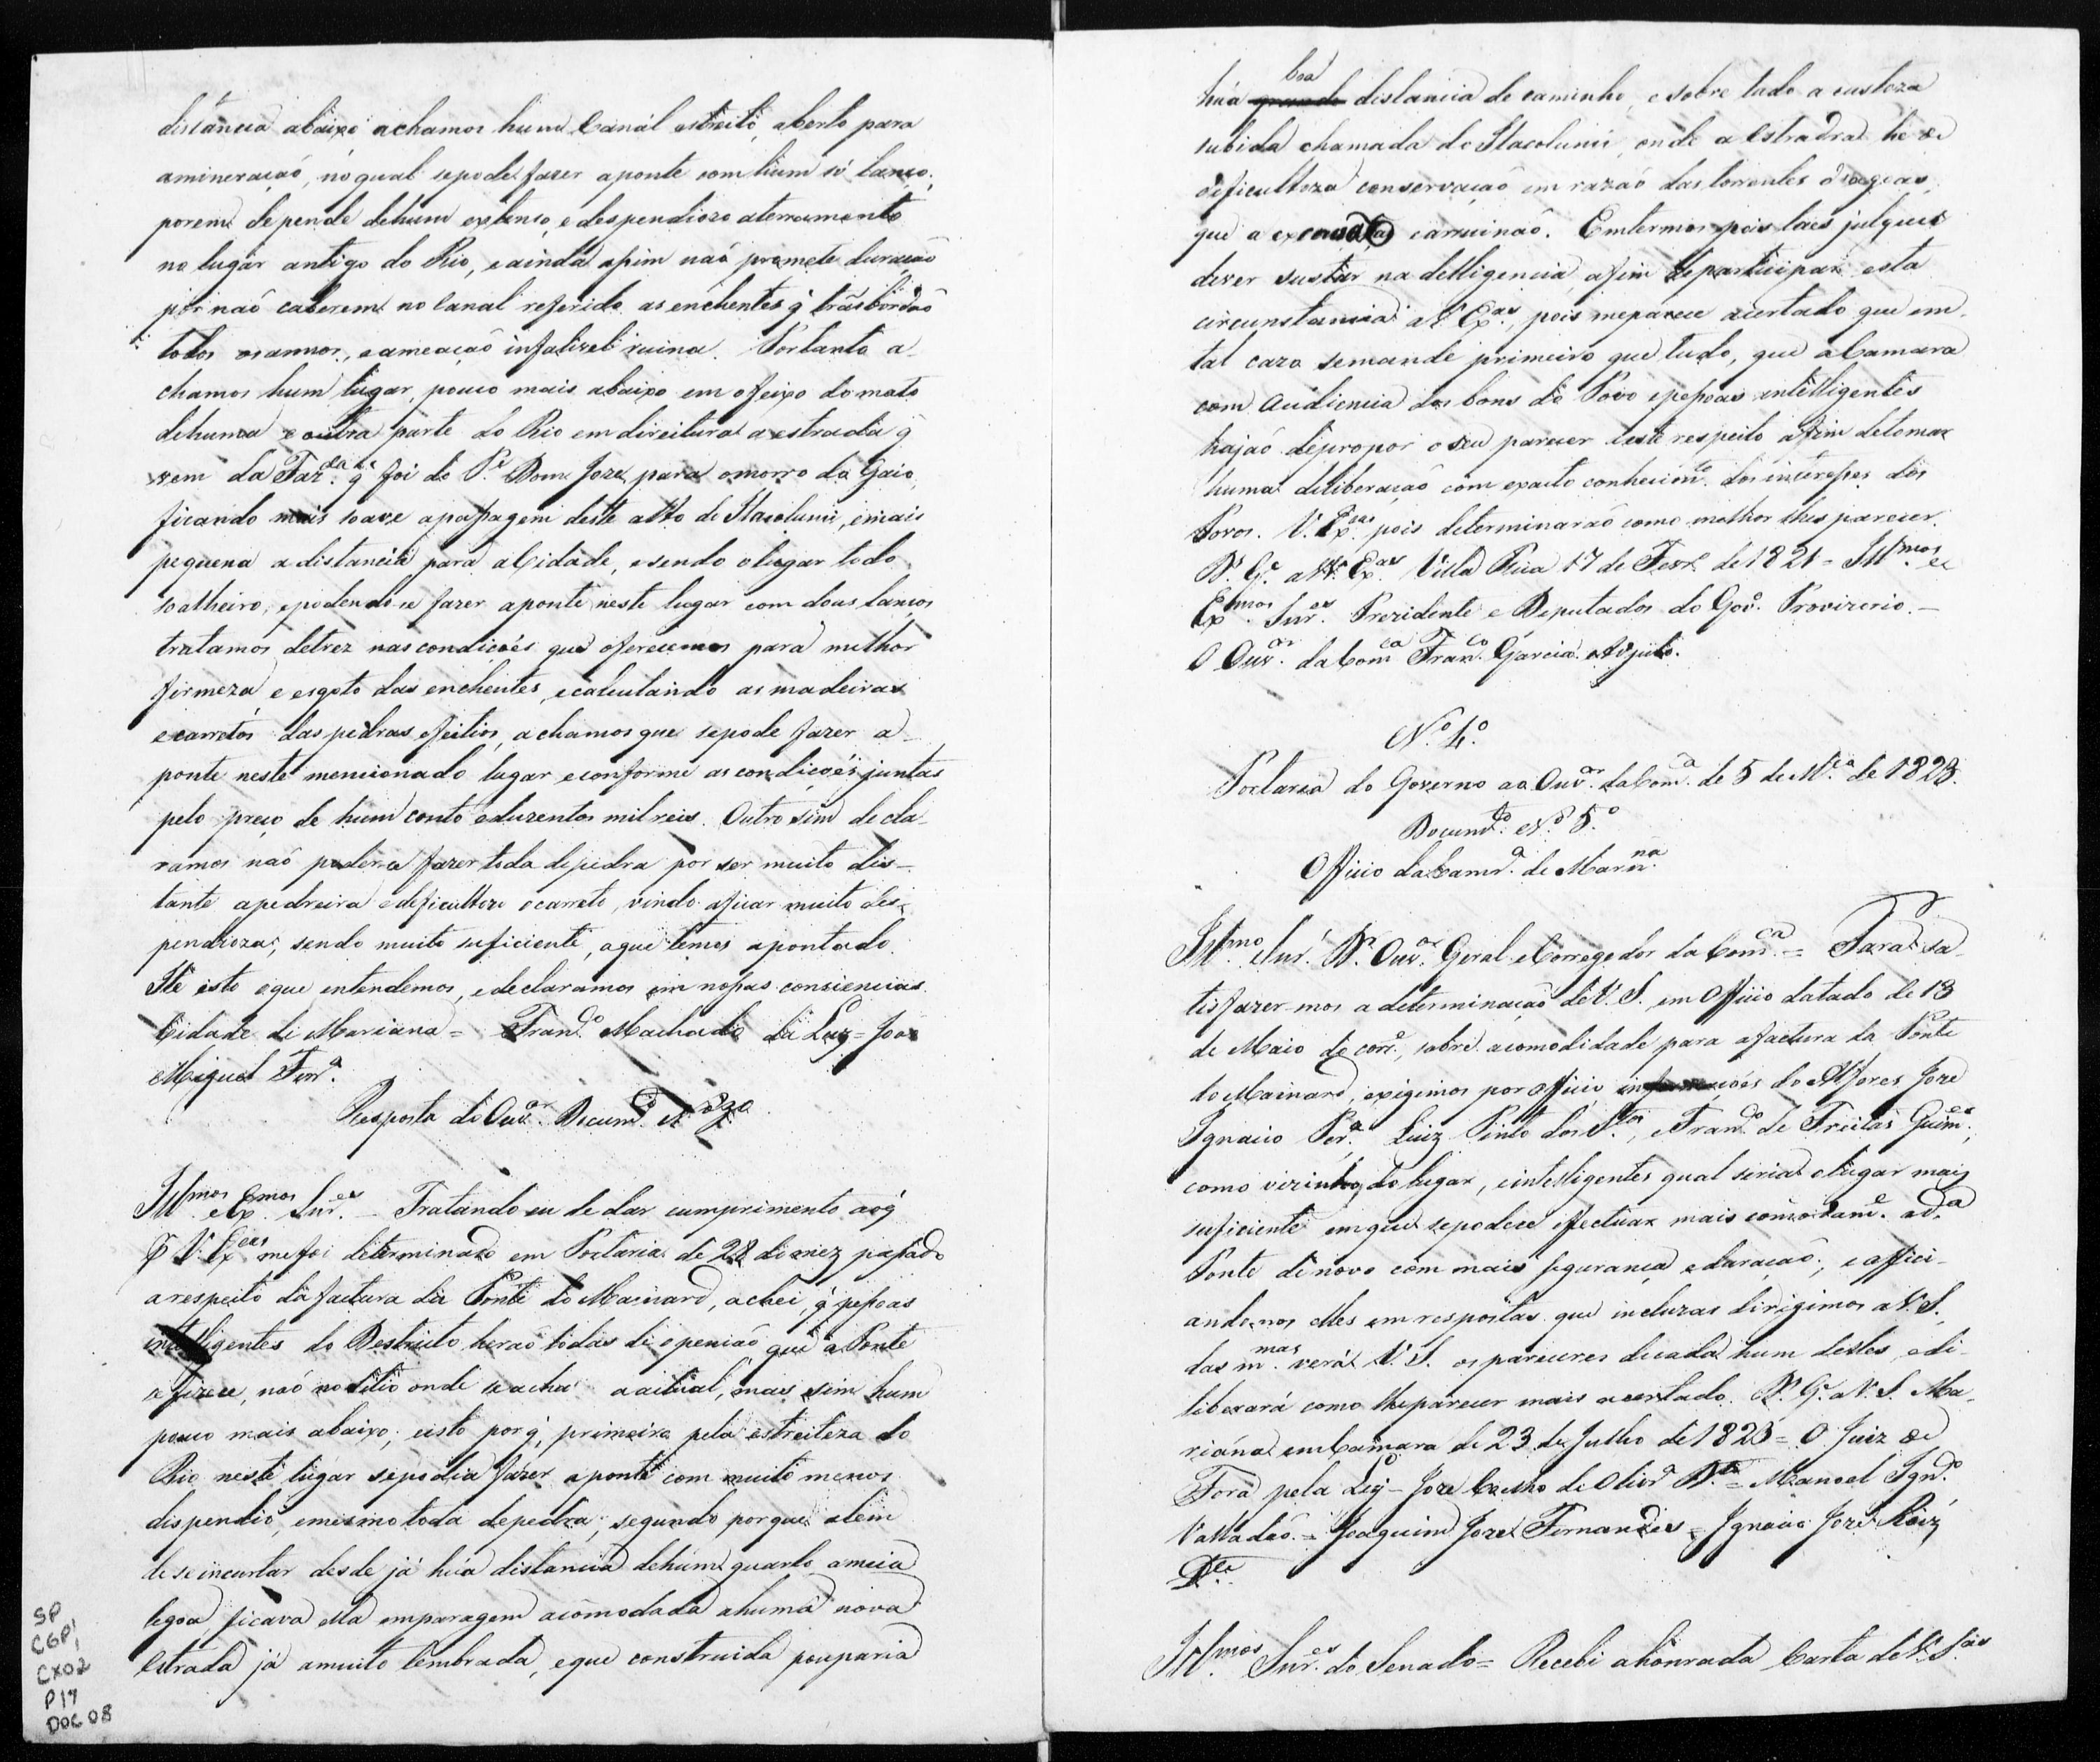 distancia abaixo achamos hum Canál estreito, aberto para
amineração, no qual sepode fazer aponte com hum só lanço;
porem depende dehum extenso, e despendiozo aterramento
no lugar antigo do Rio, e ainda assim naõ promete duração
por naõ caberem no Canal referido as enchentes q̃ trasbordaõ
todos os annos, e ameaçaõ infalivel ruina. Portanto a-
chamos hum lugar, pouco mais abaixo em o feixo do mato
dehuma e outra parte do Rio em direitura a estrada q̃
vem da Faz.da q̃ foi do P.e Dom.s Joze, para omorro do Gaio,
ficando mais soave apassagem deste alto do Itacolumi, emais
pequena a distancia para aCidade, e sendo olugar todo
soalheiro, epodendo-se fazer aponte neste lugar com dous lanços
tratamos detrez nas condicoẽs que oferecemos para melhor
firmeza, e esgoto das enchentes, ecalculando as madeiras
ecarretos das pedras efeitios, achamos que sepode fazer a-
ponte neste mencionado lugar econforme as condiçoẽs juntas
pelo preço de hum conto eduzentos mil reis. Outro sim decla-
ramos naõ poderse fazer toda depedra por ser muito dis-
tante apedreira edeficultozo ocarreto, vindo aficar muito des-
pendioza, sendo muito suficiente, aque temos apontado.
He isto oque entendemos, edeclaramos em nossas consiencias.
Cidade de Mariana = Fran.co Machado da Luz = Joaõ
Miguel Ferr.a
Resposta do Ouv.or Docum.to N.o 3.o
Ill.mos e Ex.mos Snr.es = Tratando eu de dar cumprimento aoq̃
P V. Ex.cas mefoi determinado em Portaria de 28 do mez passado
arespeito da factura da Ponte do Mainard, achei, q̃ pessoas
intelligentes do Destricto heraõ todas de openiaõ que a Ponte
se fizece, naõ no sitio onde seacha aactual, mas sim hum
pouco mais abaixo; eisto porq̃, primeiro pela estreiteza do
Rio neste lugar sepodia fazer aponte com muito menos
dispendio, emesmo toda depedra; segundo porque alem
de seincurtar desde já huã distancia dehum quarto, ameia
legoa, ficava ella emparagem acomodada ahumá nova
estrada já amuito lembrada, eque construida pouparia
SP
CGP1
CX02
P17
DOC 08
boa
huã grande distancia de caminho, e sobre tudo a custoza
subida chamada do Itacolumi, onde a Estrada he de
deficultoza conservaçaõ em razaõ das torrentes dagoas
que a carruinaõ. Emtermos pois taes julguei
dever sustar na delligencia, afim departicipar esta
circunstancia aV. Ex.as, pois meparece acertado que em
tal cazo semande primeiro que tudo, que aCamara
com Audiencia dos bons do Povo epessoas intelligentes
hajaõ depropor o seu parecer aeste respeito afim detomar
huma deliberaçaõ com exacto conhecim.to dos interesses dos
Povos. V. Ex.cas pois determinaraõ como melhor lhes parecer.
D.s G.e a VV. Ex.as Villa Rica 17 de Fevr.o de 1821 = Ill.mos e
Ex.mos Snr.es Prezidente e Deputados do Gov.o Provizorio. =
O Ouv.or daCom.ca Fran.co Garcia Adjuto.
N.o 4.o
Portaria do Governo ao Ouv.or daCom.ca de 5 de M.ço de 1823.
Docum.to N.o 5.o
Officio daCamr.a de Marn.na
Ill.mo Snr. D.r Ouv.or Geral eCorregedor daCom.ca = Para sa-
tisfazer-mos a determinaçaõ deV. S. em Officio datado de 13
de Maio do corr.e, sobre acomodidade para afactura da Ponte
do Mainard, exigimos por officio informaçoẽs do Alferes Joze
Ignacio Per.a Luiz Pinto dos S.tos, e Fran.co de Freitas Guim.es,
como vizinhos do lugar, eintelligentes qual seria olugar mais
suficiente emque sepodece effectuar mais comodam.e ad.a
Ponte denovo com mais segurança eduraçaõ; eaffici-
andonos elles em respostas que incluzas dirigimos a V. S.
das m.mas verá V. S. os pareceres decada hum delles, edi-
liberará como lheparecer mais acertado. D.s G.e a V. S. Ma-
riana emCamara de 23 de Julho de 1823 = O Juiz de
Fora pela Ley = Joze Coelho de Olivr.a D.te = Manoel Ign.co
Valladaõ = Joaquim Joze Fernandes = Ignacio Joze Roiz
D.te
Ill.mos Snr.es do Senado = Recebi ahonrada Carta de V. S.as